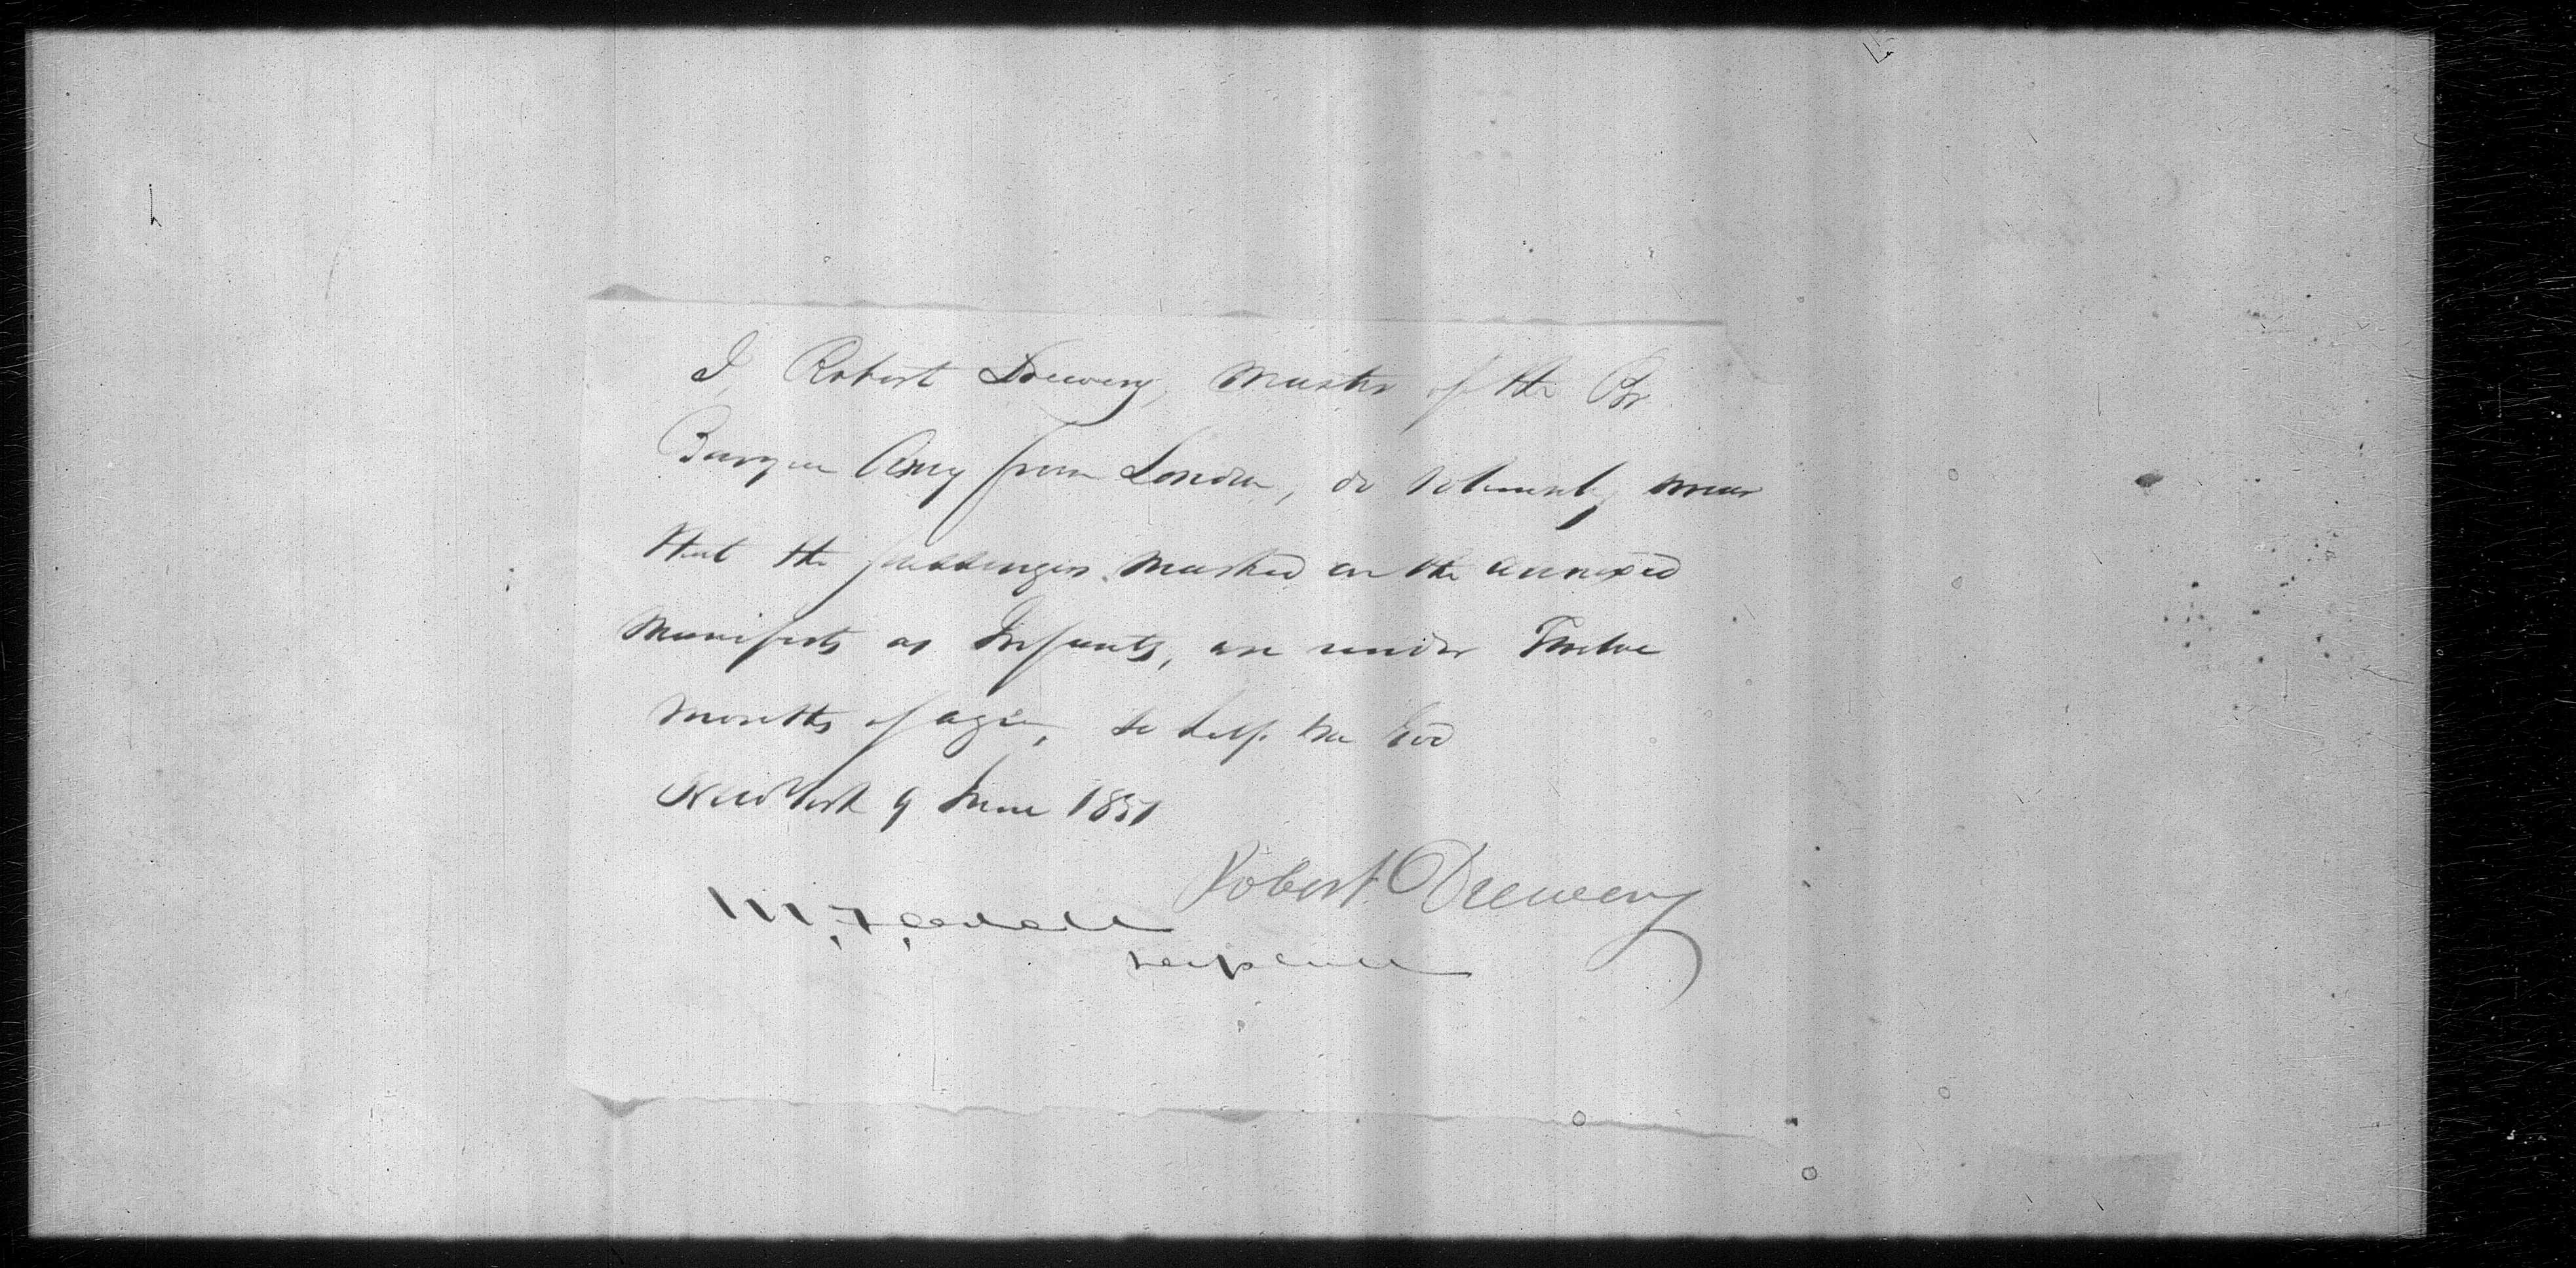 I, Robert Drewery, Master of the Br
Barque Amy from London, do solemnly swear
that the passengers marked on the annexed
Manifests as Infants, are under Twelve
months of age, so help me God
New York 9 June 1851
Robert Drewery